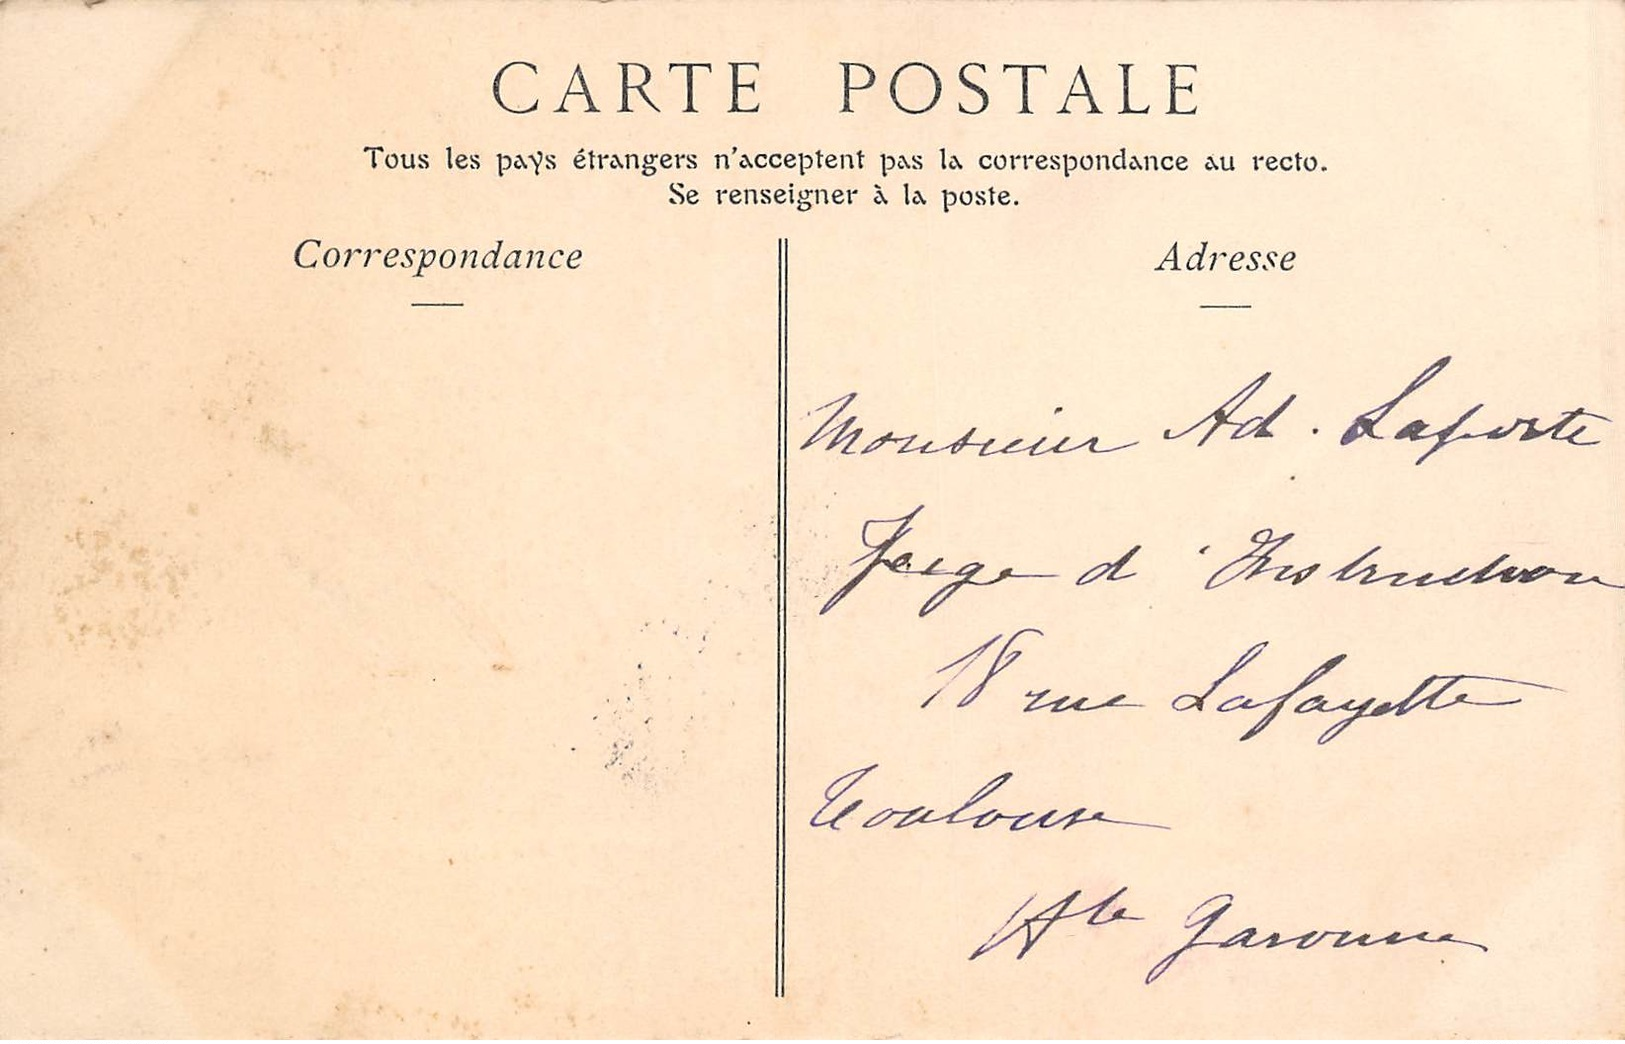 CARTE POSTALE
Tous les pays étrangers n'acceptent pas la correspondance au recto.
Se renseigner à la poste.
Correspondance
Adresse
Monsieur Ad. Laporte
Juge d'Instruction
18 rue Lafayette
Toulouse
Hte Garonne